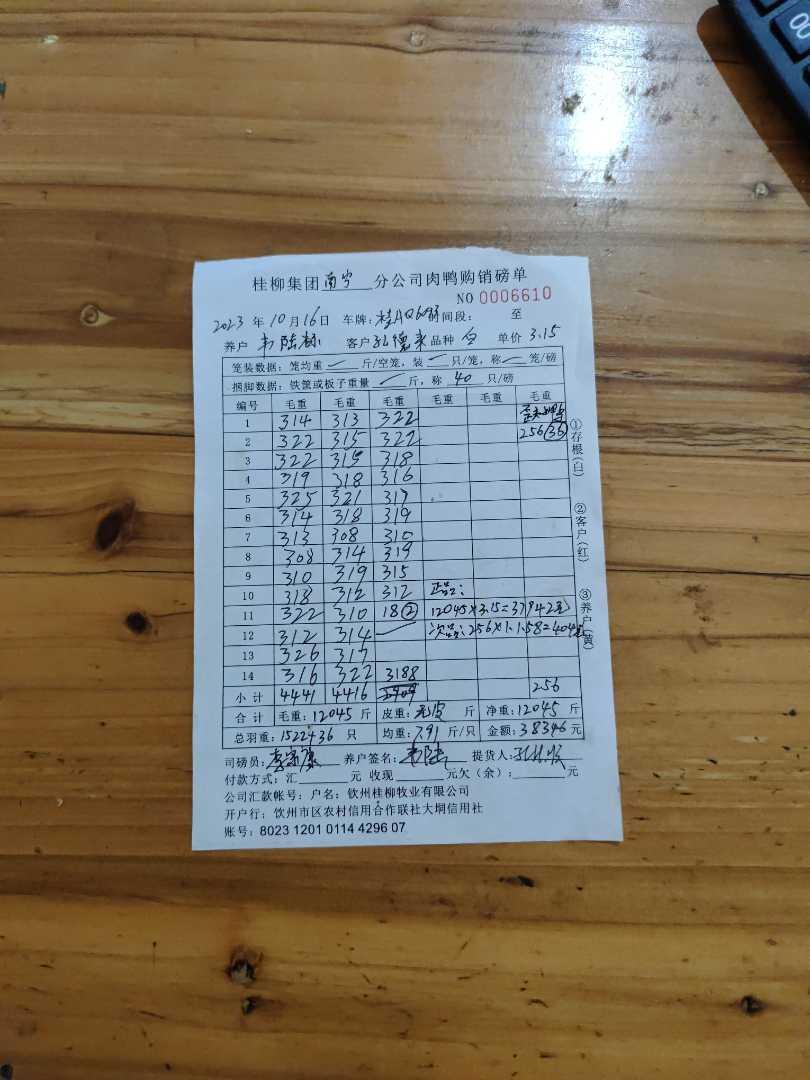 桂柳集团 南宁 分公司肉鸭购销磅单
NO 0006610
2023 年 10 月 16 日 车牌: 时间段: 至
养户 韦陆 客户 品种 白 单价 3.15
笼装数据: 笼均重 斤/空笼, 装 只/笼, 称 笼/磅
捆脚数据: 铁筐或板子重量 斤, 称 40 只/磅
编号 毛重 毛重 毛重 毛重 毛重 毛重
1 314 313 322
2 322 315 322 256 (36)
3 322 315 318
4 319 318 316
5 325 321 317
6 314 318 319
7 313 308 310
8 308 314 319
9 310 319 315
10 318 312 312 正品:
11 322 310 18② 12045×3.15=37942元
12 312 314 次品: 256×1.58=404元
13 326 317
14 316 322 3188
小计 4441 4416 256
合计 毛重: 12045 斤 皮重: 斤 净重: 12045 斤
总羽重: 1522+36 只 均重: 7.91 斤/只 金额: 38346 元
司磅员: 养户签名: 韦陆 提货人:
付款方式: 汇 元 收现 元欠(余): 元
公司汇款帐号: 户名: 钦州桂柳牧业有限公司
开户行: 钦州市区农村信用合作联社大垌信用社
账号: 8023 1201 0114 4296 07
①存根(白)
②客户(红)
③养户(黄)
00